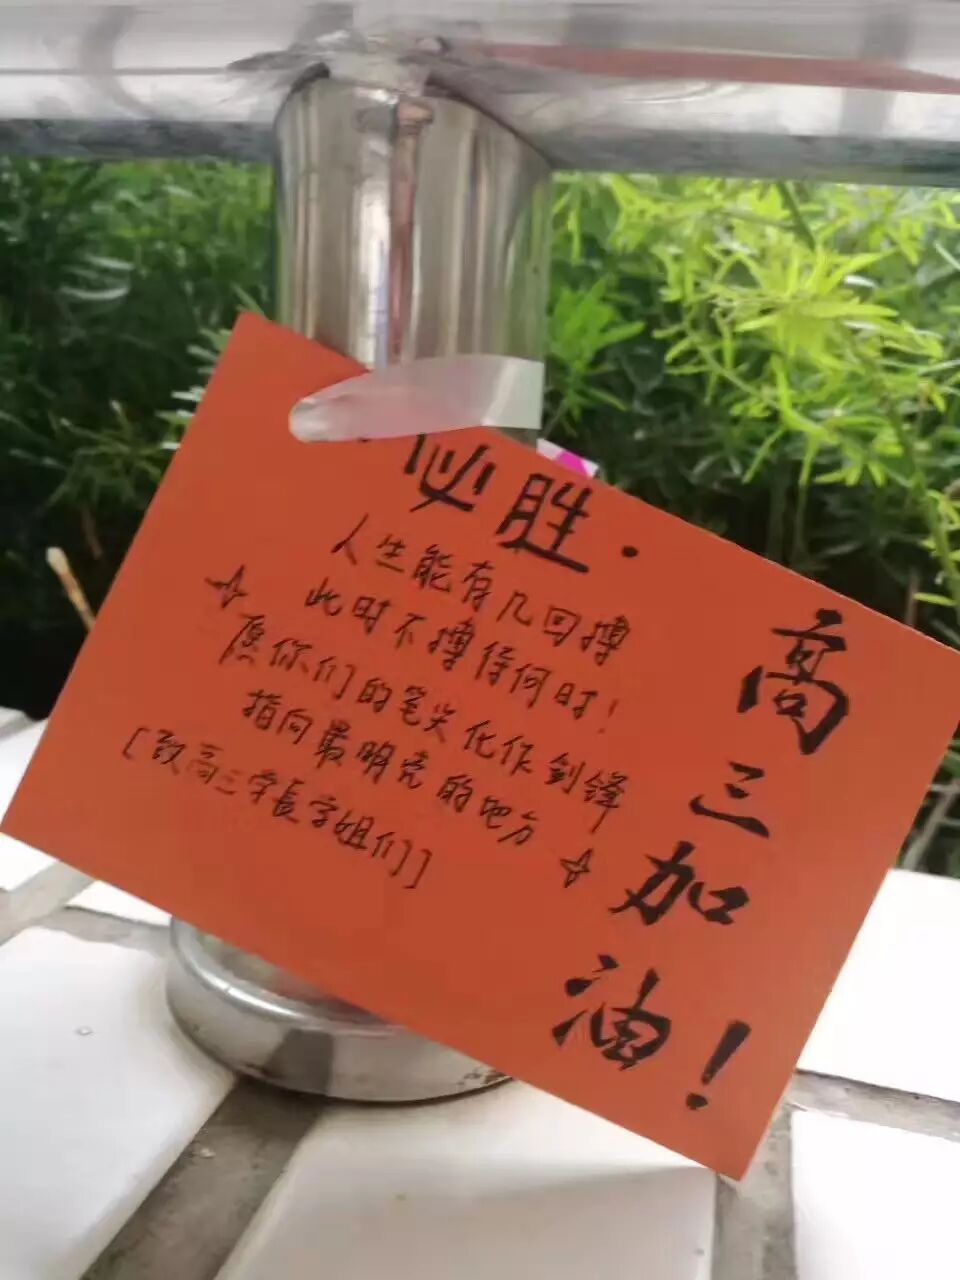 必胜.
人生能有几回搏
此时不搏待何时!
愿你们的笔尖化作剑锋
指向最明亮的地方
[致高三学长学姐们]
高三加油!